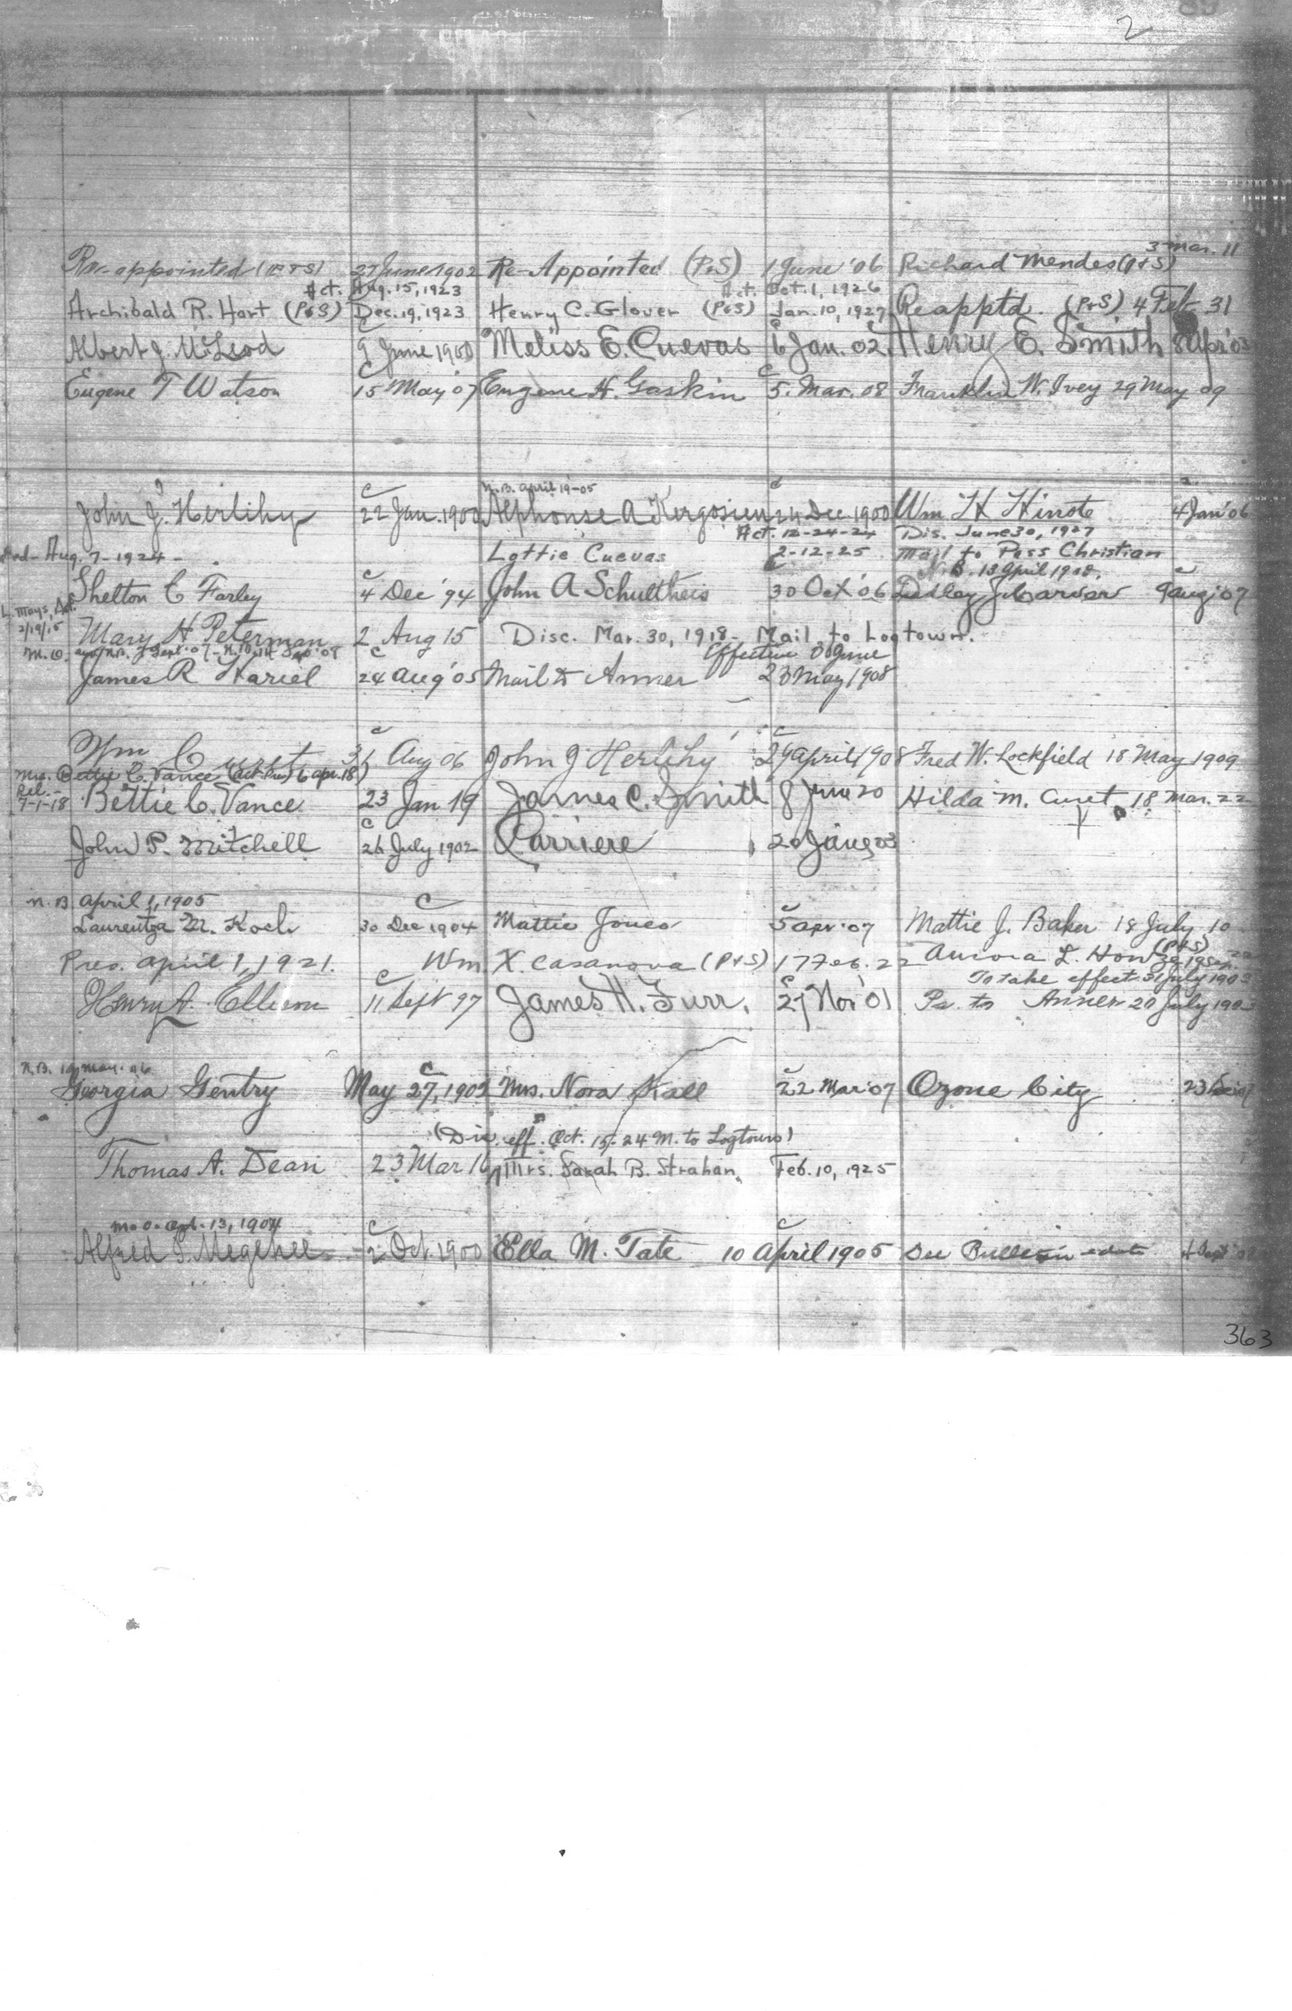 2
3 Mar. 11
Re-appointed (P & S) 27 June 1902 Re-Appointed (P&S) 1 June '06 Richard Mendes (P&S)
Act. Aug. 15, 1923 Act. Oct. 1, 1926
Archibald R. Hart (P&S) Dec. 19, 1923 Henry C. Glover (P&S) Jan. 10, 1927 Reapptd. (P&S) 4 Feb 31
Albert J. McLeod 9 June 1900 Meliss E. Cuevas 6 Jan. 02. Henry E. Smith 8 Apr 03
Eugene T Watson 15 May '07 Eugene H. Gaskin 5. Mar. 08 Franklin W. Ivey 29 May 09
N.B. April 19-05
John J. Herlihy 22 Jan. 1900 Alphonse A Kergosien 24 Dec 1900 Wm H Hinote 4 Jan '06
Act. 12-24-24 Dis. June 30, 1927
Aug. 7-1924- Lottie Cuevas 2-12-25 Mail to Pass Christian
N.B. 13 April 1908.
Shelton C Farley 4 Dec '94 John A Schultheis 30 Oct '06 Dudley J. Carver 9 Aug '07
L. Mays, Act.
2/19/15
Mary H Peterman 2 Aug 15 Disc. Mar. 30, 1918- Mail to Logtown.
M.O. Effective 30 June
James R Hariel 24 Aug '05 Mail to Anner 23 May 1908
Wm C 31 Aug 06 John J Herlihy 29 April 1908 Fred W. Lockfield 18 May 1909
Mrs. Bettie C. Vance 6 apr. 18)
Rel.-
7-1-18 Bettie C. Vance 23 Jan 19 James C. Smith 8 June 20 Hilda M. Curet 18 Mar. 22
John P. Mitchell 26 July 1902 Carriere 20 Jan 03
N.B April 1, 1905
Laurentza M. Koch 30 Dec 1904 Mattie Jones 5 Apr '07 Mattie J. Baker 18 July 10
Pres. April 1, 1921. Wm. X. Casanova (P&S) 17 Feb. 22 Aurora L. Howze (P&S)
To take effect 31 July 1903
Henry A. Ellison 11 Sept 97 James H. Furr. 27 Nov '01 Ps. to Anner 20 July 1903
Georgia Gentry May 27, 1902 Mrs. Nora Hall 22 Mar '07 Ozone City
(Dis. eff. Oct. 15-24 M. to Logtown)
Thomas A. Dean 23 Mar 16 Mrs. Sarah B. Strahan Feb. 10, 1925
M.O. 13, 1904
Alfred J. Megehee 2 Oct 1900 Ella M. Tate 10 April 1905 See Bulletin
363